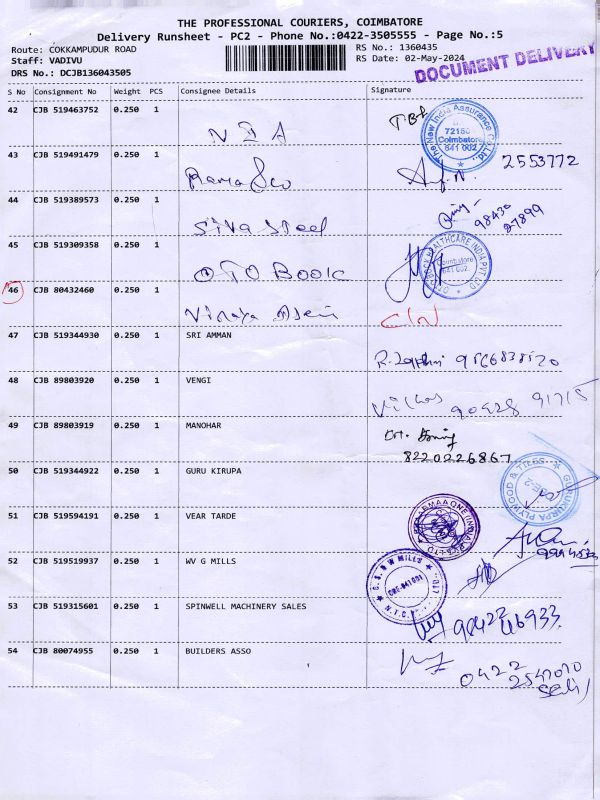 THE PROFESSIONAL COURIERS, COIMBATORE
Delivery Runsheet - PC2 - Phone No.:0422-3505555 - Page No.:5
Route: COKKAMPUDUR ROAD RS No.: 1360435
Staff: VADIVU RS Date: 02-May-2024
DOCUMENT DELIVERY
DRS No.: DCJB136043505
S No Consignment No Weight PCS Consignee Details Signature
42 CJB 519463752 0.250 1
NIA The New India Assurance Co. Ltd. 72180 Coimbatore 641 002
43 CJB 519491479 0.250 1
Rama & co 2553772
44 CJB 519389573 0.250 1
Siva Steel 98430 27899
45 CJB 519309358 0.250 1
OTO BOOK HEALTHCARE INDIA PVT LTD Coimbatore 641 002
46 CJB 80432460 0.250 1
Vinaya C/N
47 CJB 519344930 0.250 1 SRI AMMAN
48 CJB 89803920 0.250 1 VENGI
90428 91715
49 CJB 89803919 0.250 1 MANOHAR
8220226867
50 CJB 519344922 0.250 1 GURU KIRUPA
GURUKIRPA PLYWOOD & TILES CBE-2
51 CJB 519594191 0.250 1 VEAR TARDE
52 CJB 519519937 0.250 1 WV G MILLS
MILLS LTD. CBE-641 001 N.T.C.
53 CJB 519315601 0.250 1 SPINWELL MACHINERY SALES
98422 46933
54 CJB 80074955 0.250 1 BUILDERS ASSO
0422